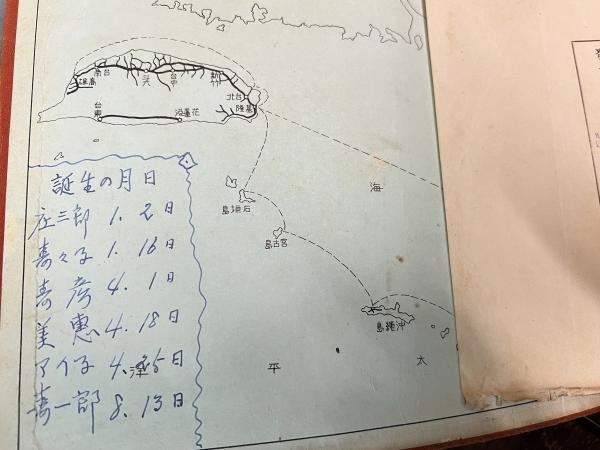 台南
高雄
嘉義
台中
新竹
台北
基隆
台東
花蓮港
石垣島
宮古島
沖縄島
海
太
平
洋
誕生の月日
庄三郎 1. 2日
寿々子 1. 16日
寿彦 4. 1日
美恵 4. 18日
アイ子 4. 25日
寿一郎 8. 13日